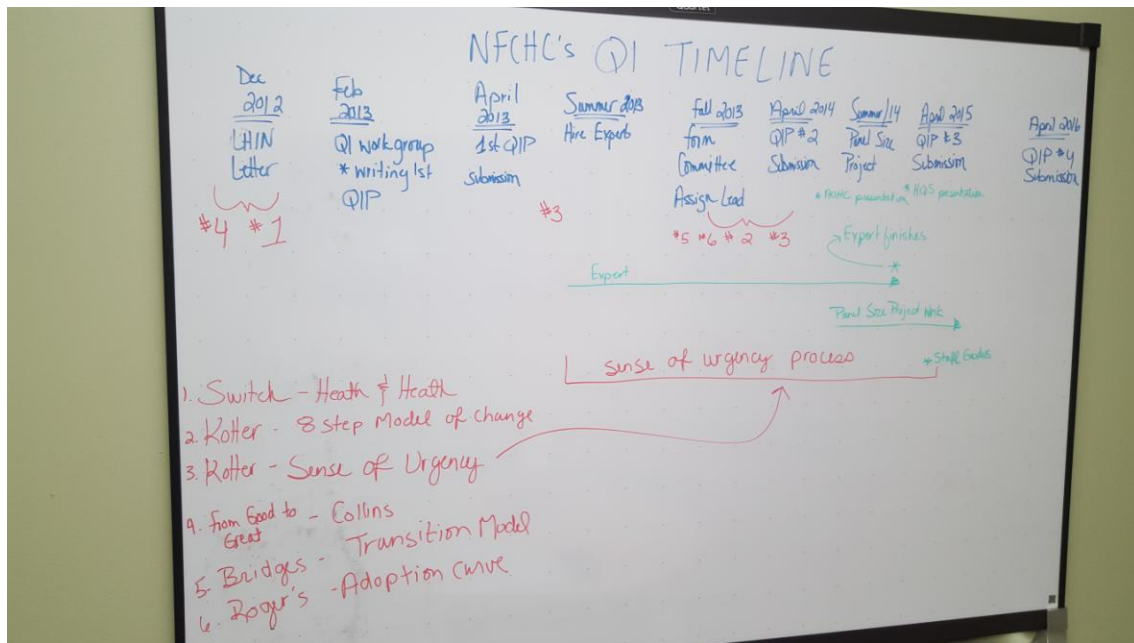 NFCHC's QI TIMELINE
Dec
2012
LHIN
Letter
#4 #1
Feb
2013
QI workgroup
* writing 1st
QIP
April
2013
1st QIP
Submission
Summer 2013
Hire Expert
#3
Fall 2013
form
Committee
Assign Lead
April 2014
QIP #2
Submission
#5 #6 #2 #3
Summer/14
Panel Size
Project
April 2015
QIP #3
Submission
* presentation
* HQS presentation
April 2016
QIP #4
Submission
Expert finishes
*
Expert
Panel Size Project Work
sense of urgency process
1. Switch - Heath & Heath
2. Kotter - 8 step Model of change
3. Kotter - Sense of Urgency
4. From Good to Great - Collins
5. Bridges - Transition Model
6. Roger's - Adoption Curve